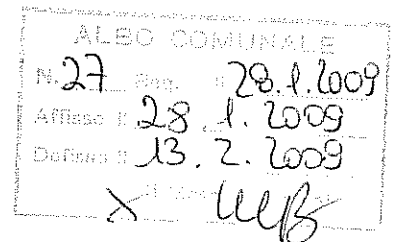 ALBO COMUNALE
N. 27 Reg. il 28.1.2009
Affisso il 28.1.2009
Defisso il 13.2.2009
Il